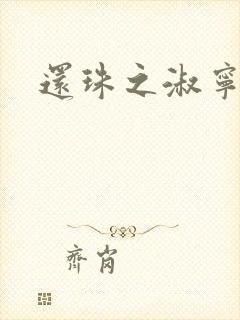 還珠之淑寧
齊崗